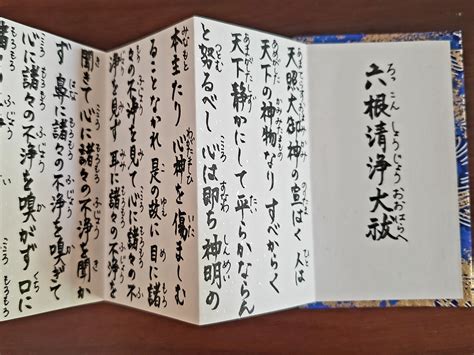 六根清浄大祓
天照大御神の宣はく人は
天下の神物なり すべからく
天下静かにして平らかならん
と努るべし 心は即ち神明の
本主たり 心神を傷ましむ
ることなかれ 是の故に目に諸
々の不浄を見て心に諸々の不
浄を見ず 耳に諸々の不浄を
聞きて心に諸々の不浄を聞か
ず 鼻に諸々の不浄を嗅ぎて
心に諸々の不浄を嗅がず 口に